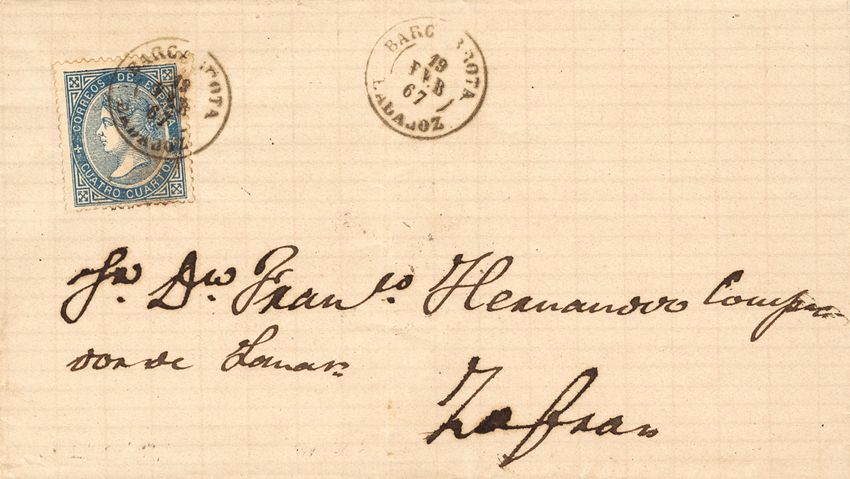 CORREOS DE ESPAÑA
CUATRO CUARTOS
BARCARROTA
19
FEB
67
BADAJOZ
BARCARROTA
19
FEB
67
BADAJOZ
Sr. Dn. Franco Hernandez Compra
dor de Lanas
Zafra